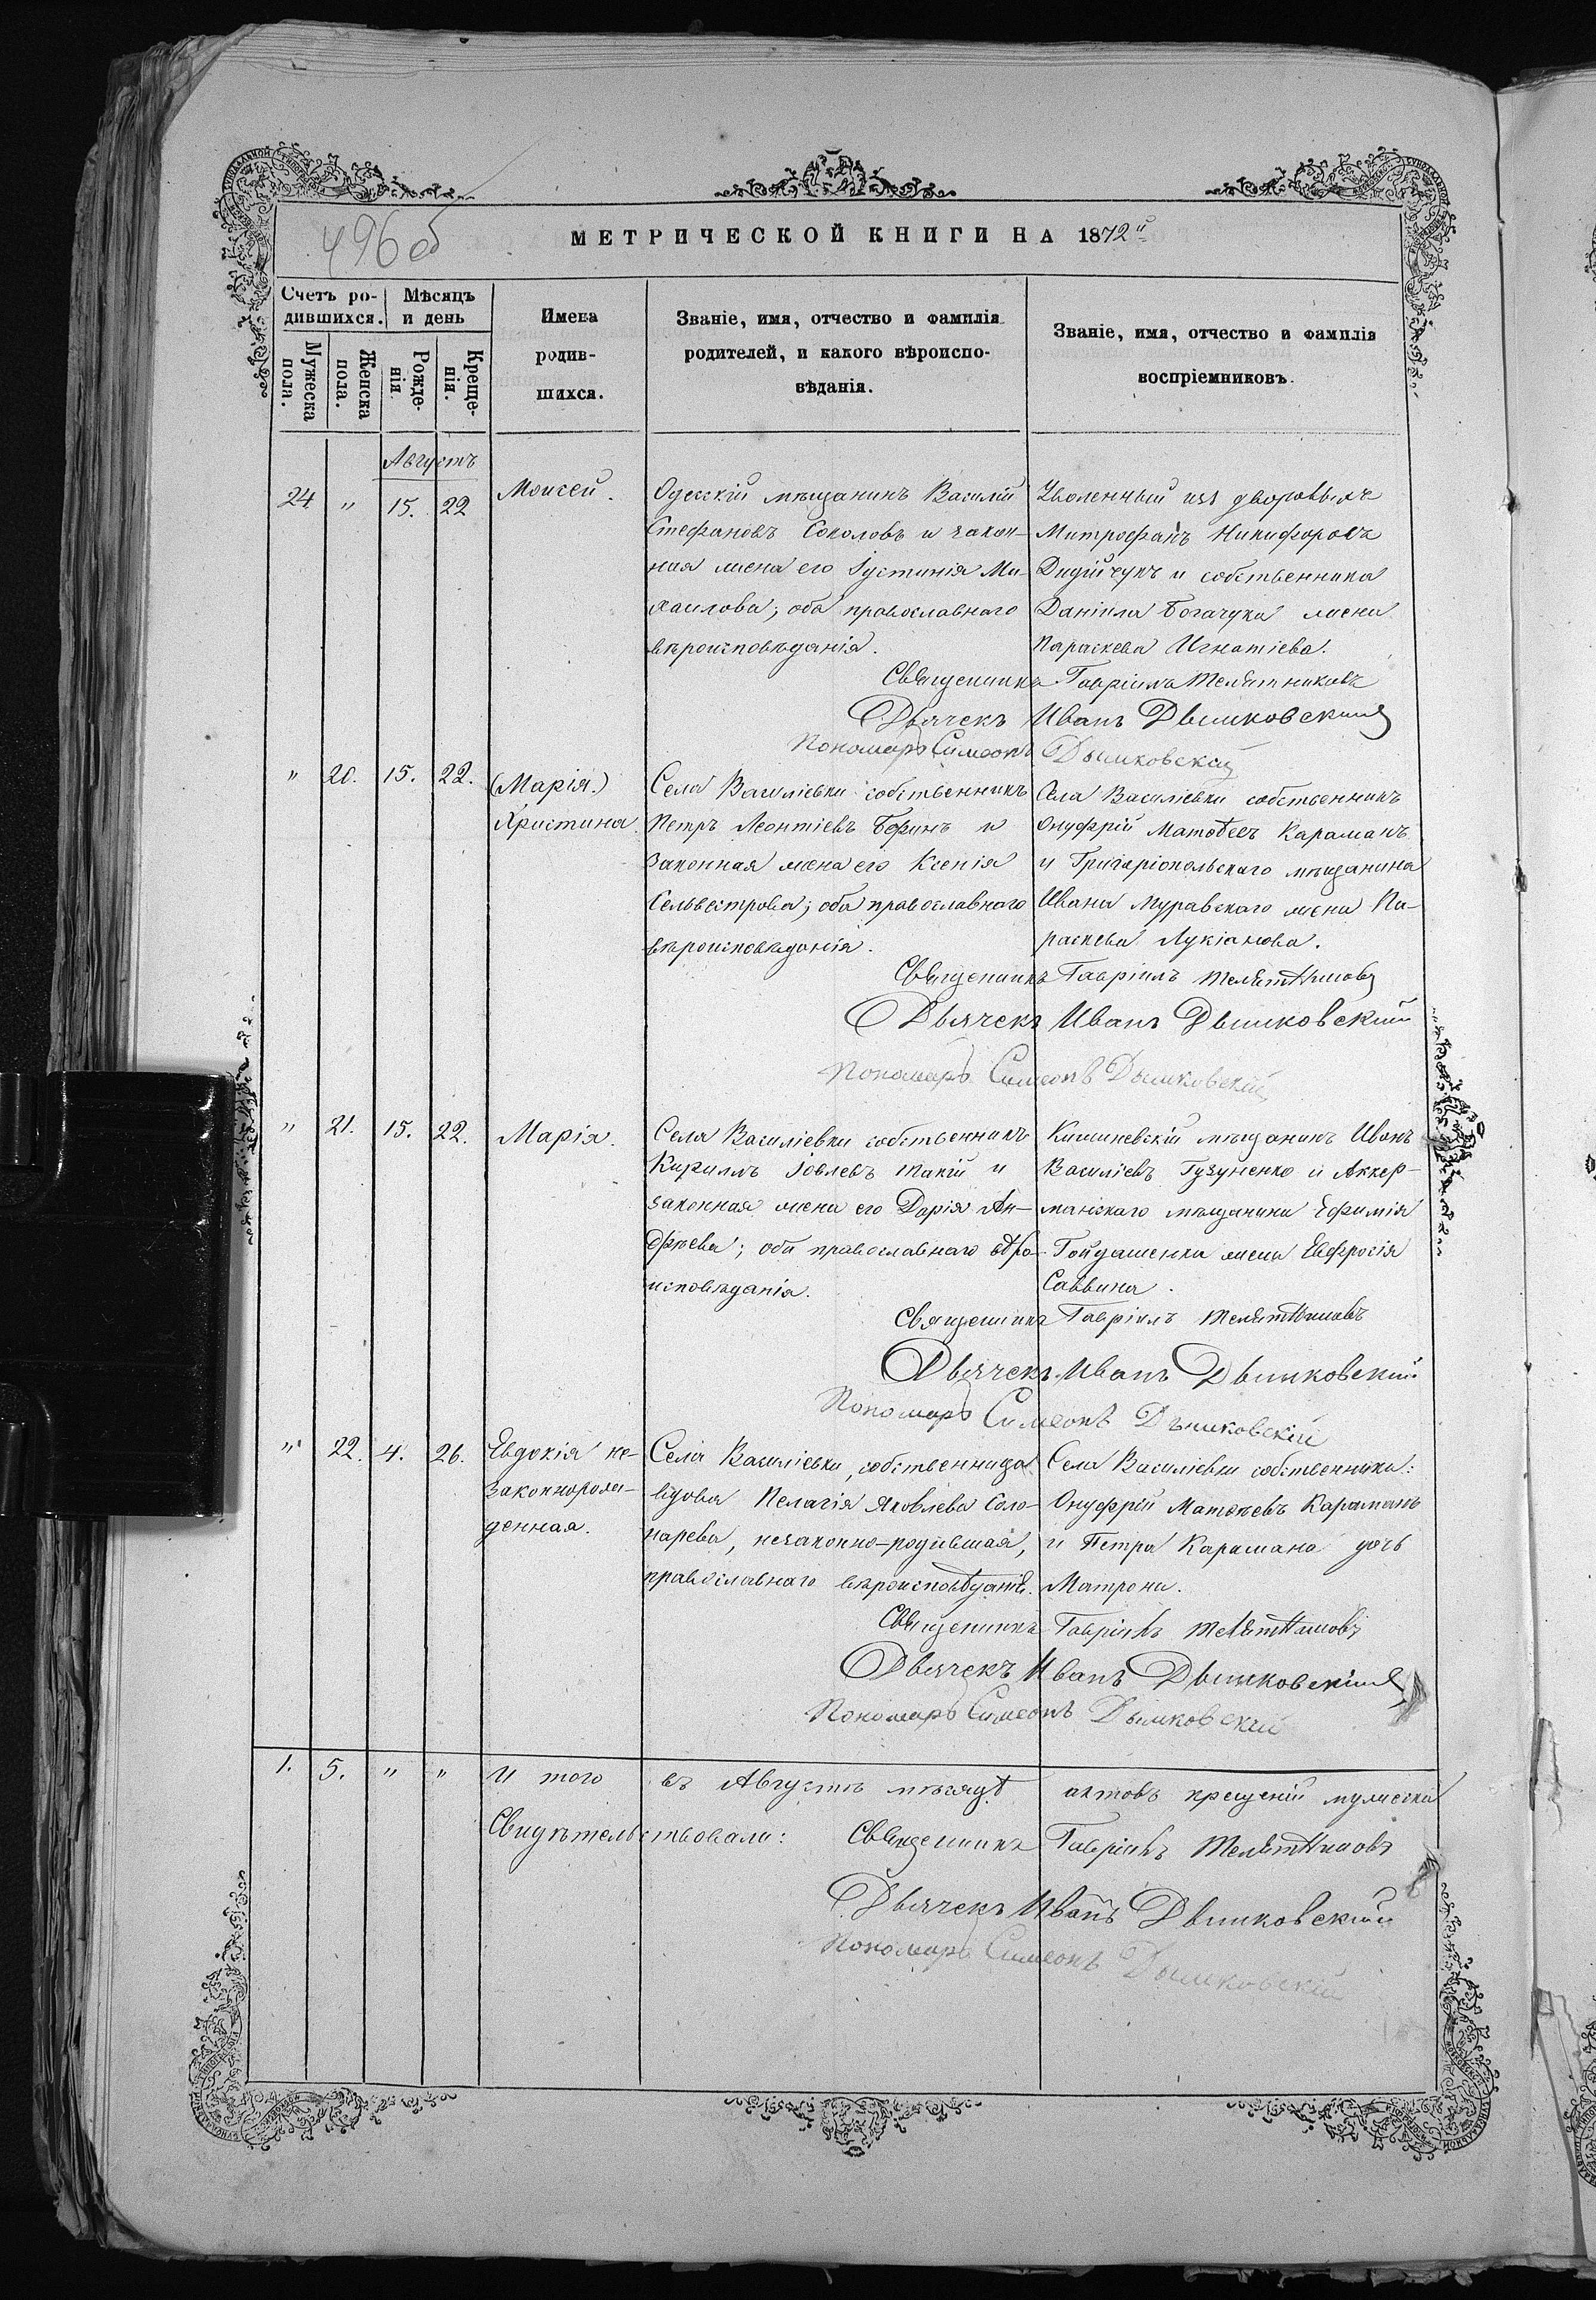 496 об
МЕТРИЧЕСКОЙ КНИГИ НА 1872й
Счетъ ро-
дившихся.
Мѣсяцъ
и день
Мужеска
пола.
Женска
пола.
Рожде-
нія.
Креще-
нія.
Имена
родив-
шихся.
Званіе, имя, отчество и фамилія
родителей, и какого вѣроиспо-
вѣданія.
Званіе, имя, отчество и фамилія
воспріемниковъ.
Августъ
24 " 15. 22 Моисей.
Одесскій мѣщанинъ Василій
Стефановъ Соколовъ и закон-
ная жена его Іустинія Ми-
хаилова; оба православнаго
вѣроисповѣданія.
Уволенный изъ дворовыхъ
Митрофанъ Никифоровъ
Дидійчукъ и собственника
Даніила Богачука жена
Параскева Игнатіева.
Священникъ Гавріилъ Телятниковъ
Дьячекъ Иванъ Дымковскій
Пономарь Симеонъ Дымковскій
" 20. 15. 22. (Марія.)
Христина.
Села Василіевки собственникъ
Петръ Леонтіевъ Бофинъ и
законная жена его Ксенія
Сельвестрова; оба православнаго
вѣроисповѣданія.
Села Василіевки собственникъ
Онуфрій Матвѣевъ Караманъ
и Григоріопольскаго мѣщанина
Ивана Муравскаго жена Па-
раскева Лукіанова.
Священникъ Гавріилъ Телятниковъ
Дьячекъ Иванъ Дымковскій
Пономарь Симеонъ Дымковскій
" 21. 15. 22. Марія.
Села Василіевки собственникъ
Кириллъ Іовлевъ Такій и
законная жена его Дарія Ан-
дреева; оба православнаго вѣро-
исповѣданія.
Кишиневскій мѣщанинъ Иванъ
Василіевъ Гузуненко и Аккер-
манскаго мѣщанина Ефимія
Гойдашенка жена Евфросія
Саввина.
Священникъ Гавріилъ Телятниковъ
Дьячекъ Иванъ Дымковскій
Пономарь Симеонъ Дымковскій
" 22. 4. 26. Евдокія не-
законнорож-
денная.
Села Василіевки, собственница
вдова Пелагія Яковлева Соло-
нарева, незаконно-родившая,
православнаго вѣроисповѣданія.
Села Василіевки собственника:
Онуфрій Матвѣевъ Караманъ
и Петра Карамана дочь
Матрона.
Священникъ Гавріилъ Телятниковъ
Дьячекъ Иванъ Дымковскій
Пономарь Симеонъ Дымковскій
1. 5. " " И того въ Августѣ мѣсяцѣ актовъ крещеній мужеска
Свидѣтельствовали: Священникъ Гавріилъ Телятниковъ
Дьячекъ Иванъ Дымковскій
Пономарь Симеонъ Дымковскій